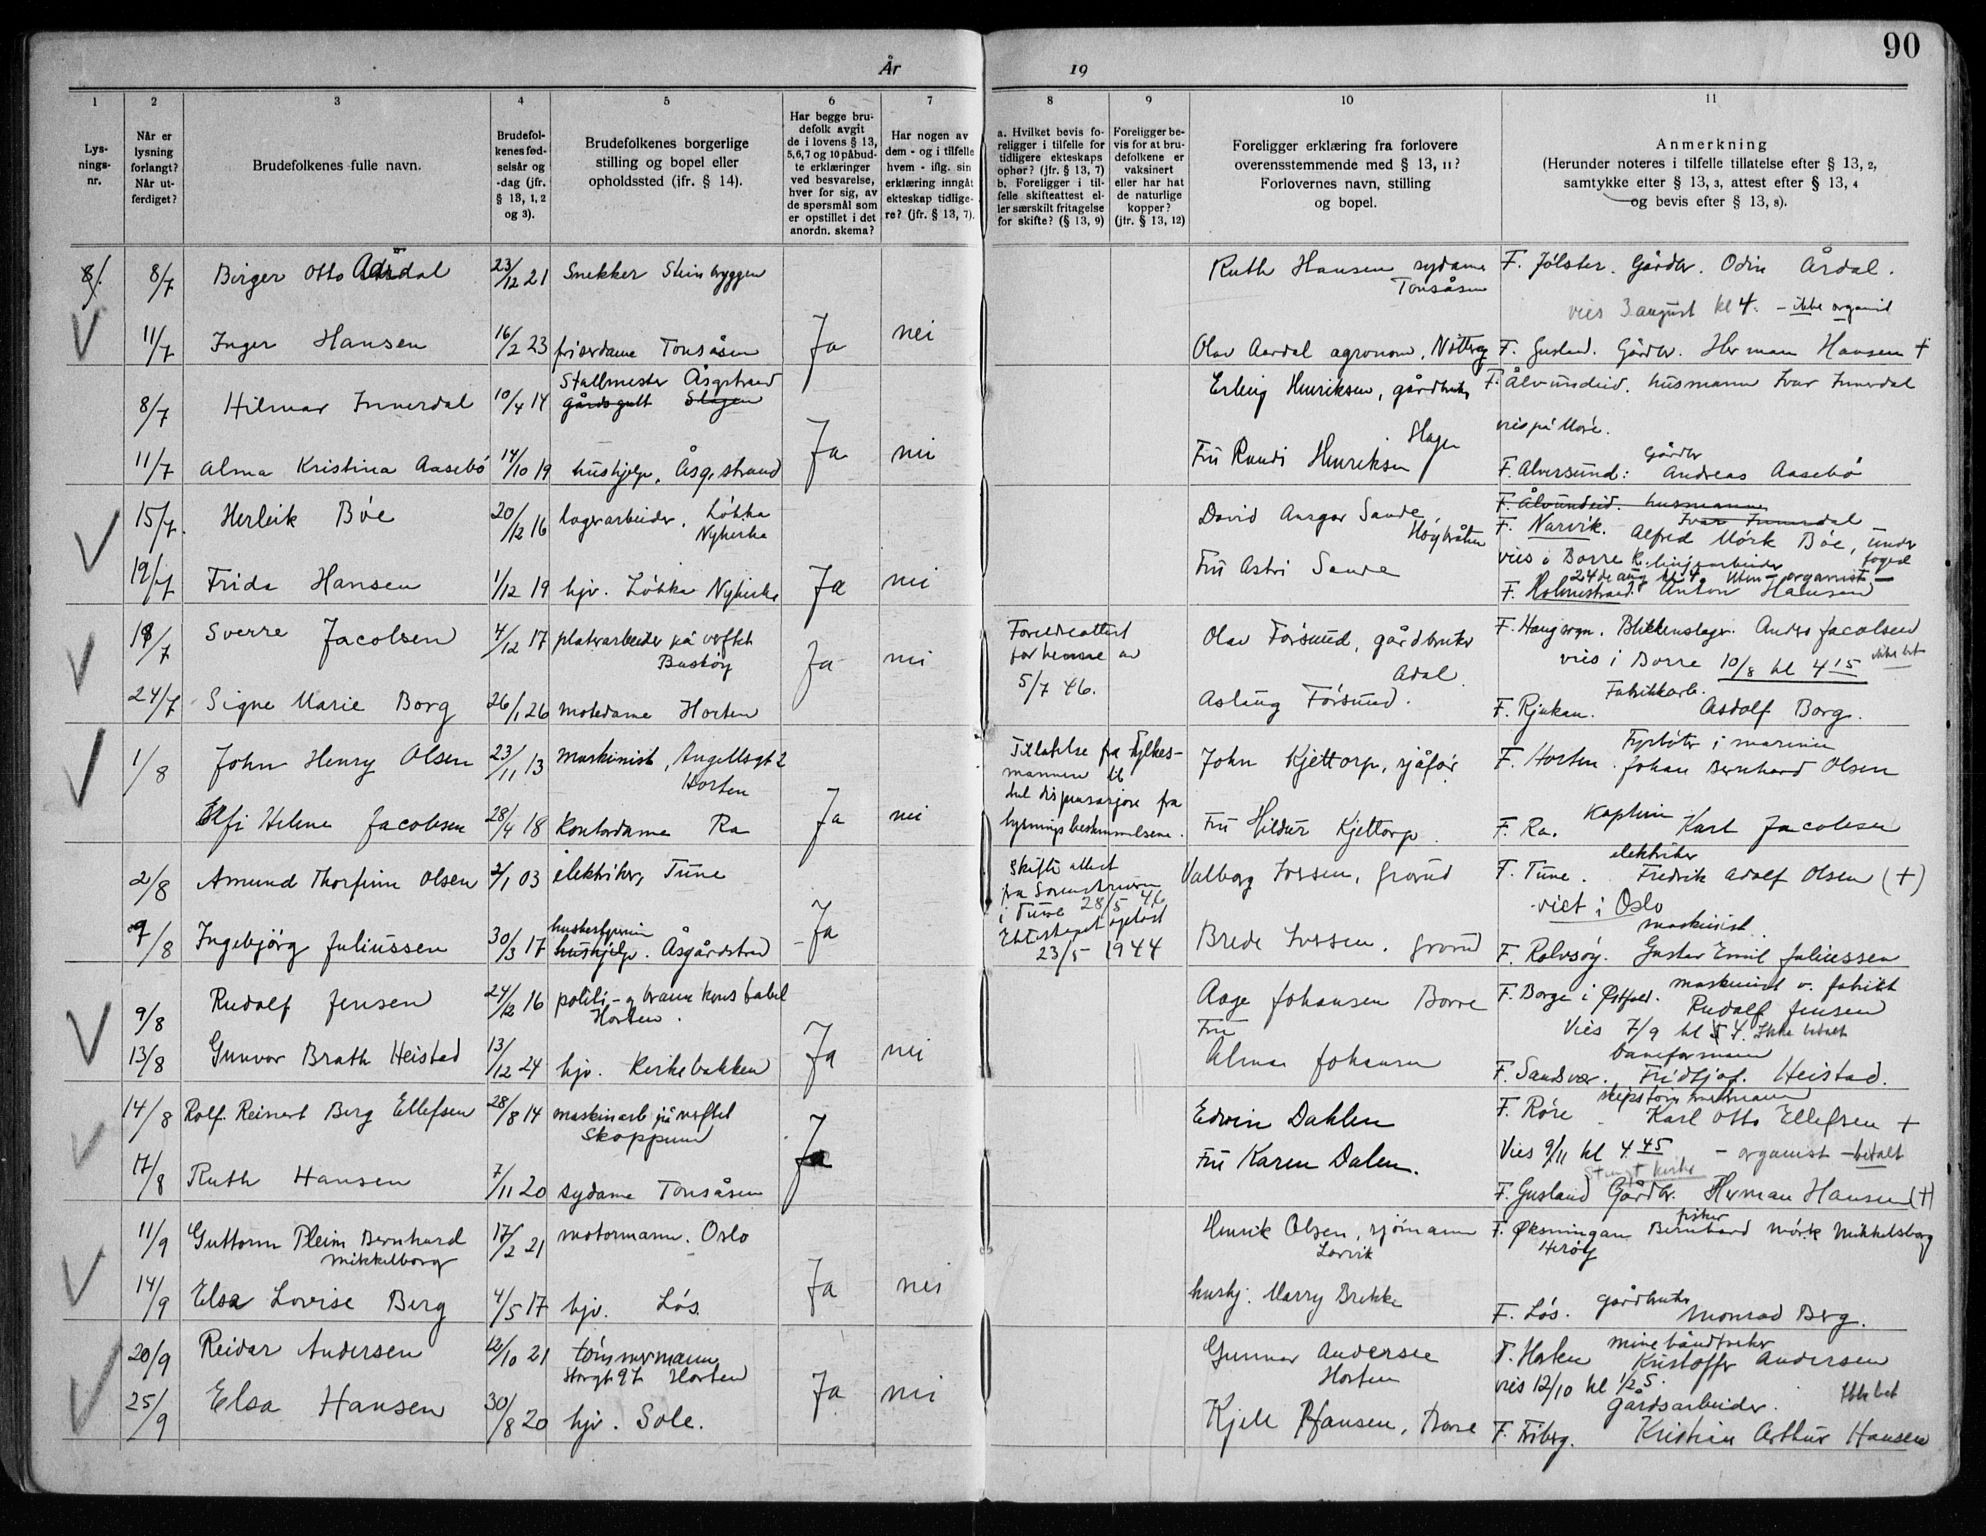 90
År 19
1 2 3 4 5 6 7 8 9 10 11
Lys-
nings-
nr.
Når er
lysning
forlangt?
Når ut-
ferdiget?
Brudefolkenes fulle navn.
Brudefol-
kenes fød-
selsår og
-dag (jfr.
§ 13, 1, 2
og 3).
Brudefolkenes borgerlige
stilling og bopel eller
opholdssted (ifr. § 14).
Har begge bru-
defolk avgit
de i lovens § 13,
5, 6, 7 og 10 påbud-
te erklæringer
ved besvarelse,
hver for sig, av
de spørsmål som
er opstillet i det
anordn. skema?
Har nogen av
dem - og i tilfelle
hvem - iflg. sin
erklæring inngått
ekteskap tidlige-
re? (jfr. § 13, 7).
a. Hvilket bevis fo-
religger i tilfelle for
tidligere ekteskaps
ophør? (jfr. § 13, 7)
b. Foreligger i til-
felle skifteattest el-
ler særskilt fritagelse
for skifte? (§ 13, 9)
Foreligger be-
vis for at bru-
defolkene er
vaksinert
eller har hat
de naturlige
kopper?
(jfr. § 13, 12)
Foreligger erklæring fra forlovere
overensstemmende med § 13, 11?
Forlovernes navn, stilling
og bopel.
Anmerkning
(Herunder noteres i tilfelle tillatelse efter § 13, 2,
samtykke efter § 13, 3, attest efter § 13, 4
og bevis efter § 13, 8).
8/7 Birger Otto Aardal 23/12 21 Snekker Steinbryggen Ruth Hansen sydame Tonsåsen F. Jølster. Gårdbr. Odin Årdal.
vies 3. august kl 4. - ikke organist
11/7 Inger Hansen 16/2 23 frisørdame Tonsåsen Ja nei Olav Aardal agronom, Nøtterøy F. Gusland. Gårdbr. Herman Hansen +
Stallmester Åsgstrand
8/7 Hilmar Innerdal 10/4 14 gårdsgutt Slagen Erling Henriksen, gårdbruker F. Ålvundeid. husmann Ivar Innerdal
Slagen vies på Møre.
11/7 Alma Kristina Aasebø 14/10 19 hushjelp, Åsg.strand Ja nei Fru Randi Henriksen F. Alversund: Gårdbr Andreas Aasebø
F. Ålvundeid. husmann Ivar Innerdal
15/7. Herleik Bøe 20/12 16 lagerarbeider, Løkka Nykirke David Ansgar Sande, Høybråten F. Narvik. Alfred Mørk Bøe, underfoged
vies i Borre k. linjearbeider
24de aug kl 4. Uten organist
19/7 Frida Hansen 1/12 19 hjv. Løkka Nykirke Ja nei Fru Astri Sande F. Holmestrand. Anton Hansen
18/7 Sverre Jacobsen 4/12 17 platearbeider på verftet Ja nei Olav Forsund, gårdbruker Adal F. Haugsogn. Blikkenslager. Anders Jacobsen
vies i Borre 10/8 kl 4 15 ikke bet
5/7 46.
24/7 Signe Marie Borg 26/1 26 motedame Horten Aslaug Forsund. F. Rjukan. Fabrikkarb. Asdolf Borg.
1/8 John Henry Olsen 23/11 13 maskinist, Angellsgt 2 Horten Tillatelse fra Fylkes-
mannen til
del dispensasjon fra
lysningsbestemmelsene.
John Kjettorp, sjåfør F. Horten. Fyrbøter i marinen Johan Bernhard Olsen
Elfi Helene Jacobsen 28/4 18 Kontordame Ra Ja nei Fru Hildur Kjettorp F. Ra. Kaptein Karl Jacobsen
2/8 Amund Thorfinn Olsen 2/1 03 elektriker, Tune Skifte attest
i Tune 28/5 46
23/5 1944
Valborg Iversen, Grorud F. Tune. elektriker Fredrik Adolf Olsen (+)
viet i Oslo
9/8 Ingebjørg Juliussen 30/3 17 husbestyrerinne hushjelp. Åsgårdstrand Ja Brede Iversen. Grorud F. Rolvsøy. maskinist. Gustav Emil Juliussen
9/8 Rudolf Jensen 24/12 16 politi- og brannkonstabel Horten. Aage Johansen Borre F. Borge i Østfold. maskinist v. fabrikk Rudolf Jensen
Vies 7/9 kl 4. Ikke betalt
13/8 Gunvor Brath Heistad 13/12 24 hjv. Kirkebakken Ja nei Fru Alma Johansen F. Sandsvær. baneformann Fridtjof. Heistad.
14/8 Rolf Reinert Berg Ellefsen 28/8 14 maskinarb på verftet Skoppum Edwin Dahlen F. Røre Karl Otto Ellefsen +
Vies 9/11 kl 4.45 - organist - betalt
17/8 Ruth Hansen 7/11 20 sydame Tonsåsen Ja Fru Karen Dalen. F. Gusland Gårdbr. Herman Hansen (+)
11/9 Guttorm Pleim Bernhard Mikkelborg 17/2 21 motormann. Oslo Henrik Olsen, sjømann Larvik F. Øksningan Herøy fisker Bernhard Mørk Mikkelsborg
14/9 Elsa Lovise Berg 4/5 17 hjv. Løs. Ja nei hushj. Marry Brekke F. Løs. gårdbruker Monrad Berg.
20/9 Reidar Andersen 12/10 21 tømmermann Storgt 97 Horten Gunnar Andersen Horten F. Horten minebåndtvekter Kristoffer Andersen
vies 12/10 kl 1/2 5. Ikke bet
25/9 Elsa Hansen 30/8 20 hjv. Sole. Ja nei Kjell Hansen, Borre F. Friberg. Gårdsarbeider. Kristian Arthur Hansen